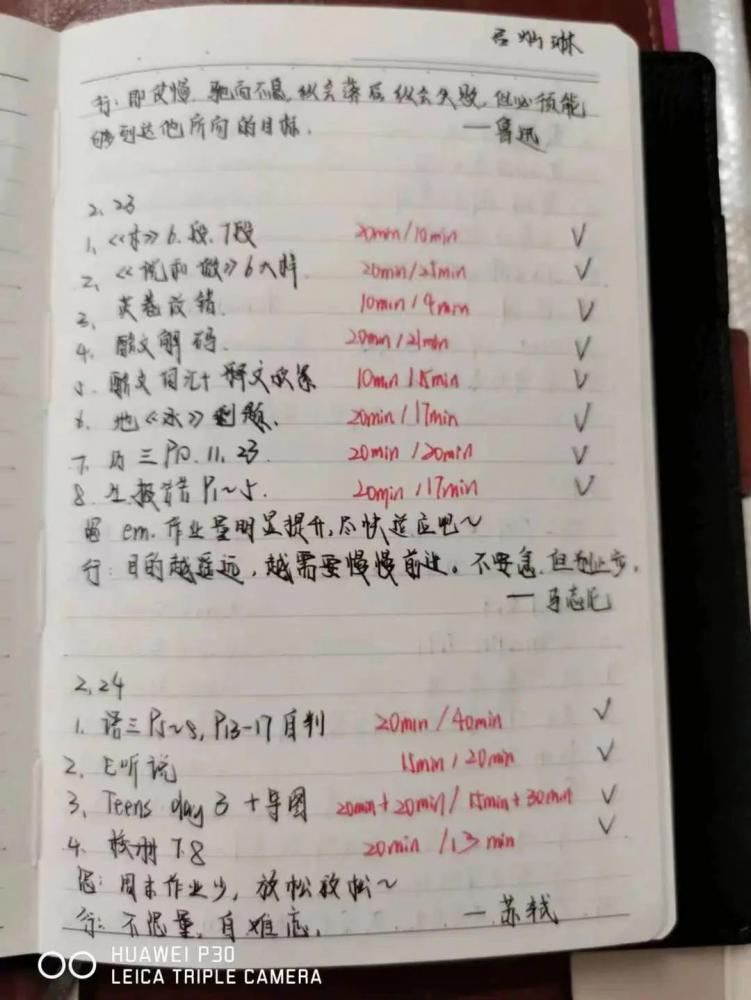 行：即使慢，驰而不息，纵会落后，纵会失败，但必须能
够到达他所向的目标。 —鲁迅
2.23
1、《水》6段、7段 20min/10min ✓
2、《说和做》6大料 20min/25min ✓
3、英卷改错 10min/4min ✓
4、酷文解码 20min/21min ✓
5、酷文词汇+ 10min/15min ✓
6、地《水》刷题、 20min/17min ✓
7、历三P10、11、23、 20min/20min ✓
8、生报 P1~5、 20min/17min ✓
思 em、作业量明显提升，尽快适应吧~
行：目的越遥远，越需要慢慢前进。不要急，但别止步。
—马志尼
2、24
1、语三P5~8，P13-17自判 20min/40min ✓
2、E听说 15min/20min ✓
3、Teens day 3 +导图 20min+20min/15min+30min ✓
4、 7、8 20min/13min ✓
思：周末作业少，放松放松~
行：不思量，自难忘。 —苏轼
HUAWEI P30
LEICA TRIPLE CAMERA